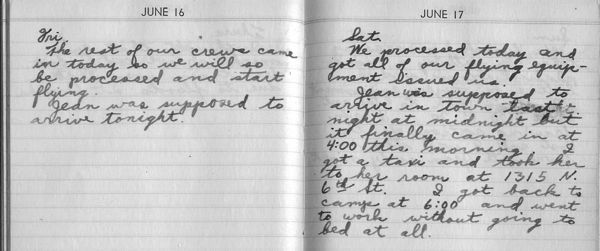 JUNE 16
Fri.
The rest of our crews came
in today so we will so
be processed and start
flying.
Jean was supposed to
arrive tonight.
JUNE 17
Sat.
We processed today and
got all of our flying equip-
ment issued us.
Jean was supposed to
arrive in town last
night at midnight but
it finally came in at
4:00 this morning I
got a taxi and took her
to her room at 1315 N.
6th St. I got back to
camp at 6:00 and went
to work without going to
bed at all.